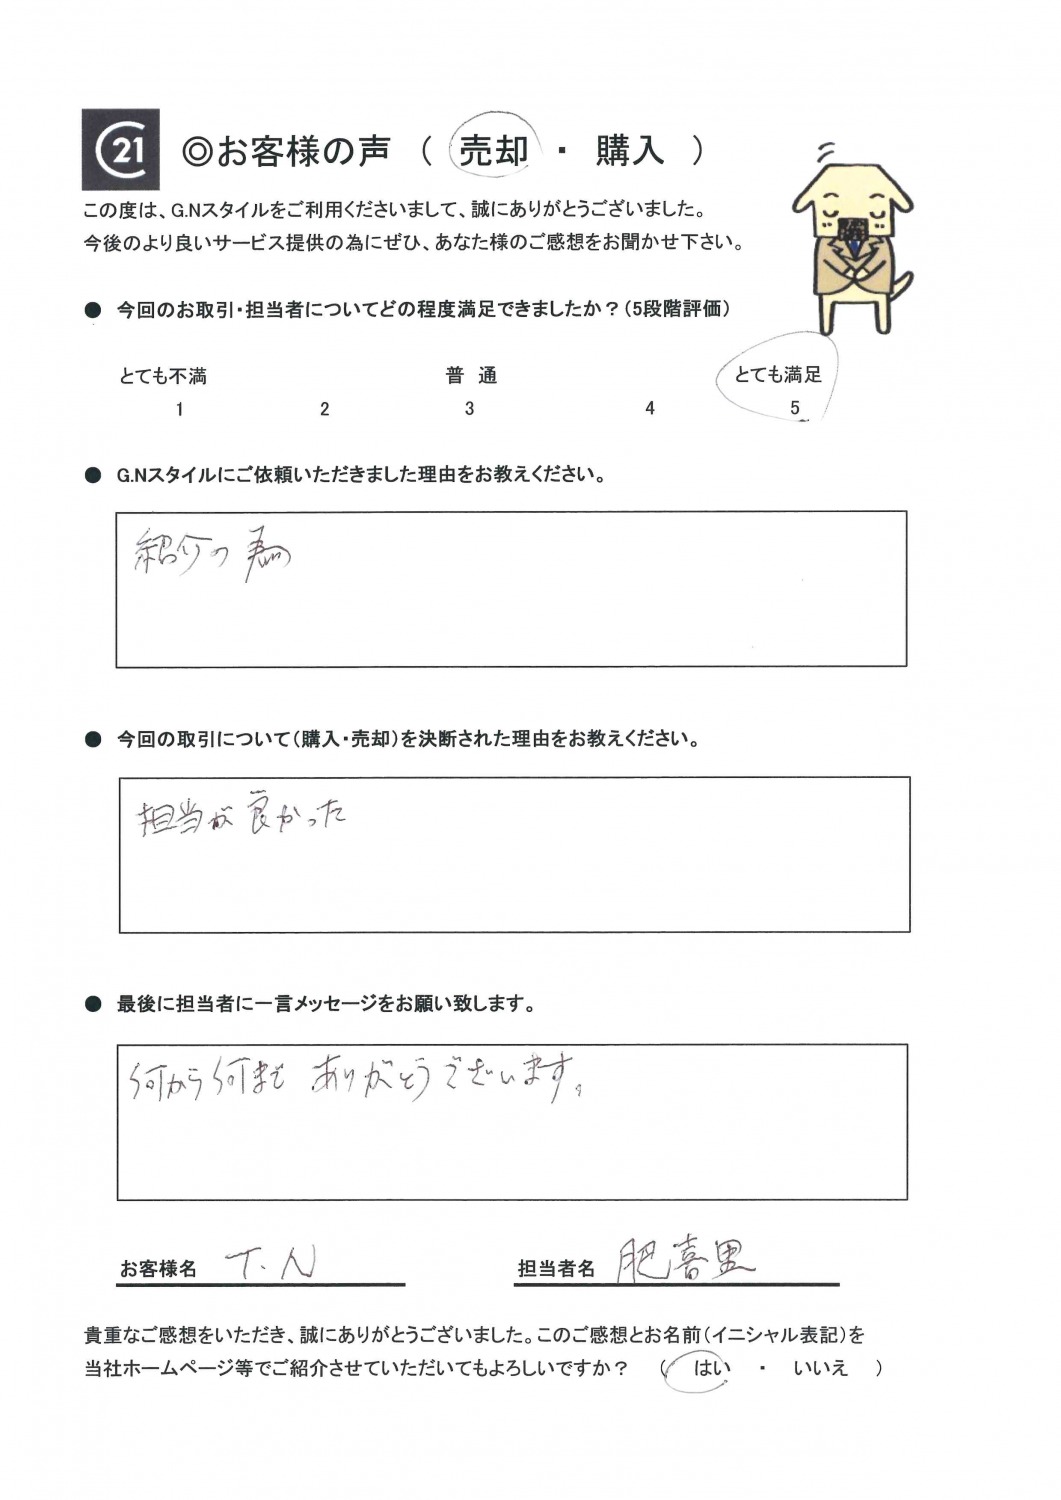 C21 ◎お客様の声 ( 売却 ・ 購入 )
この度は、G.Nスタイルをご利用くださいまして、誠にありがとうございました。
今後のより良いサービス提供の為にぜひ、あなた様のご感想をお聞かせ下さい。
● 今回のお取引・担当者についてどの程度満足できましたか？(5段階評価)
とても不満 普 通 とても満足
1 2 3 4 5
● G.Nスタイルにご依頼いただきました理由をお教えください。
紹介の為
● 今回の取引について(購入・売却)を決断された理由をお教えください。
担当が良かった
● 最後に担当者に一言メッセージをお願い致します。
何から何まで ありがとうございます。
お客様名 T.N 担当者名 肥喜里
貴重なご感想をいただき、誠にありがとうございました。このご感想とお名前(イニシャル表記)を
当社ホームページ等でご紹介させていただいてもよろしいですか？ ( はい ・ いいえ )